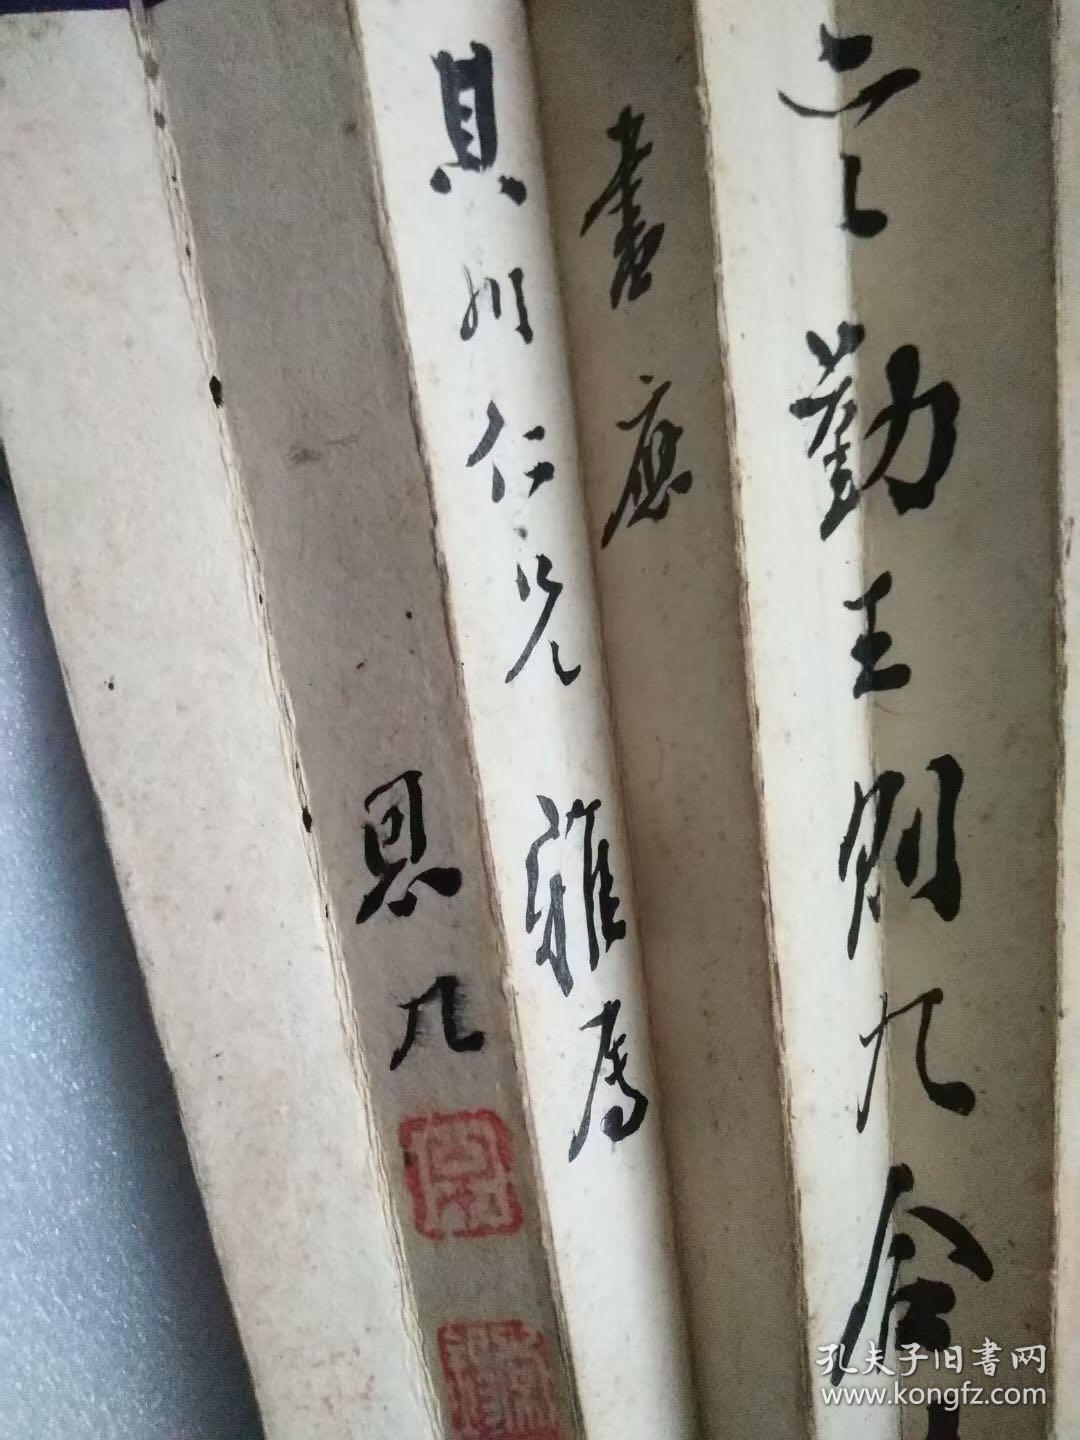 之勤王則九合
書應
貝川仁兄雅屬
恩九
孔夫子旧書网
www.kongfz.com